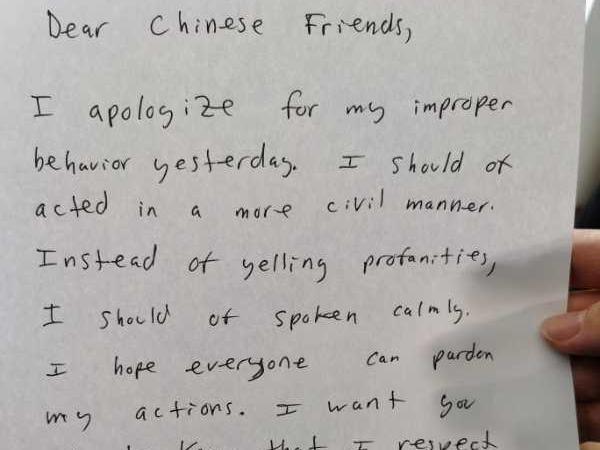 Dear Chinese Friends,
I apologize for my improper
behavior yesterday. I should of
acted in a more civil manner.
Instead of yelling profanities,
I should of spoken calmly.
I hope everyone can pardon
my actions. I want you
know that I respect